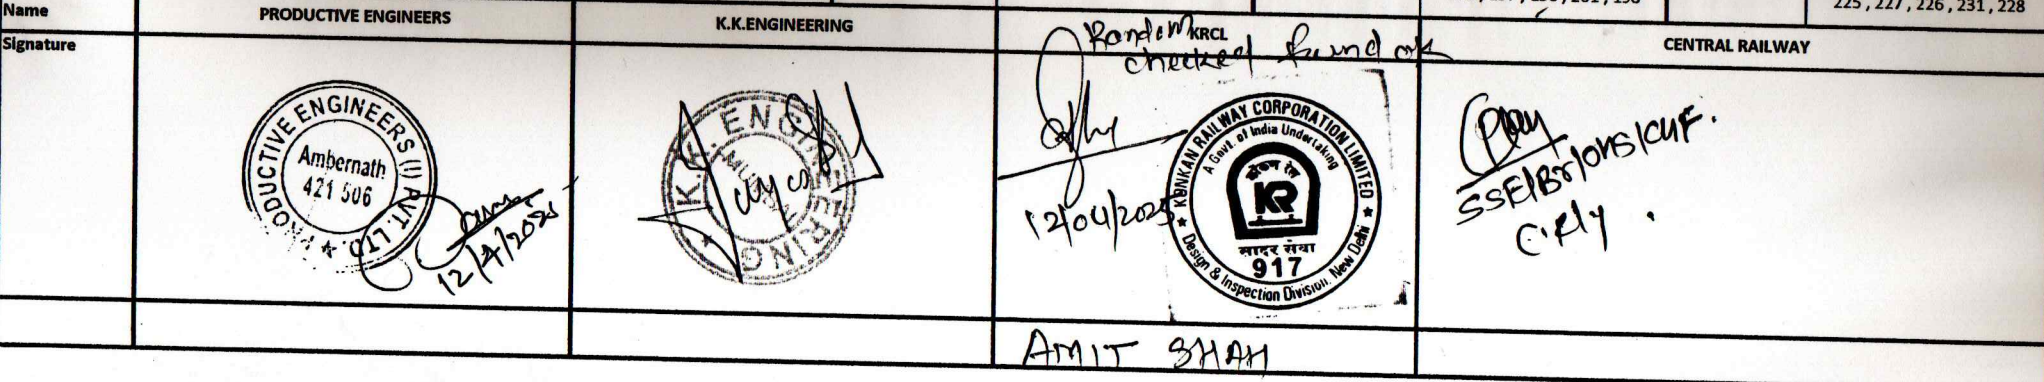 225, 227, 226, 231, 228
Name
PRODUCTIVE ENGINEERS
K.K.ENGINEERING
KRCL
CENTRAL RAILWAY
Random
checked found ok
Signature
PRODUCTIVE ENGINEERS (I) PVT. LTD.
Ambernath
421 506
12/4/2025
K.K. ENGINEERING
MUMBAI
12/04/2025
KONKAN RAILWAY CORPORATION LIMITED
A Govt. of India Undertaking
कोंकण रेल
KR
सादर सेवा
917
Design & Inspection Division, New Delhi
C.Rly.
AMIT SHAH